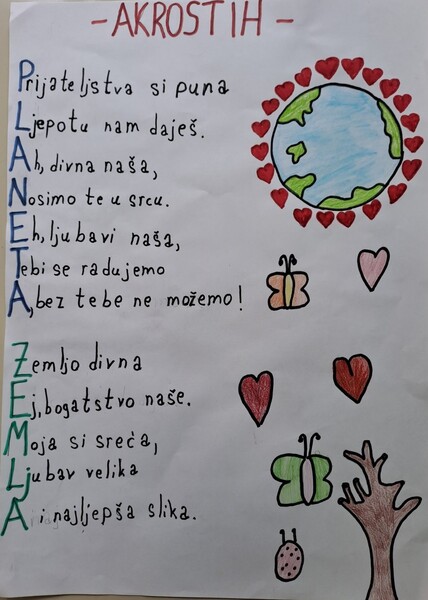 -AKROSTIH-
Prijateljstva si puna
Ljepotu nam daješ.
Ah, divna naša,
Nosimo te u srcu.
Eh, ljubavi naša,
Tebi se radujemo
A, bez tebe ne možemo!
Zemljo divna
Ej, bogatstvo naše.
Moja si sreća,
Ljubav velika
A i najljepša slika.